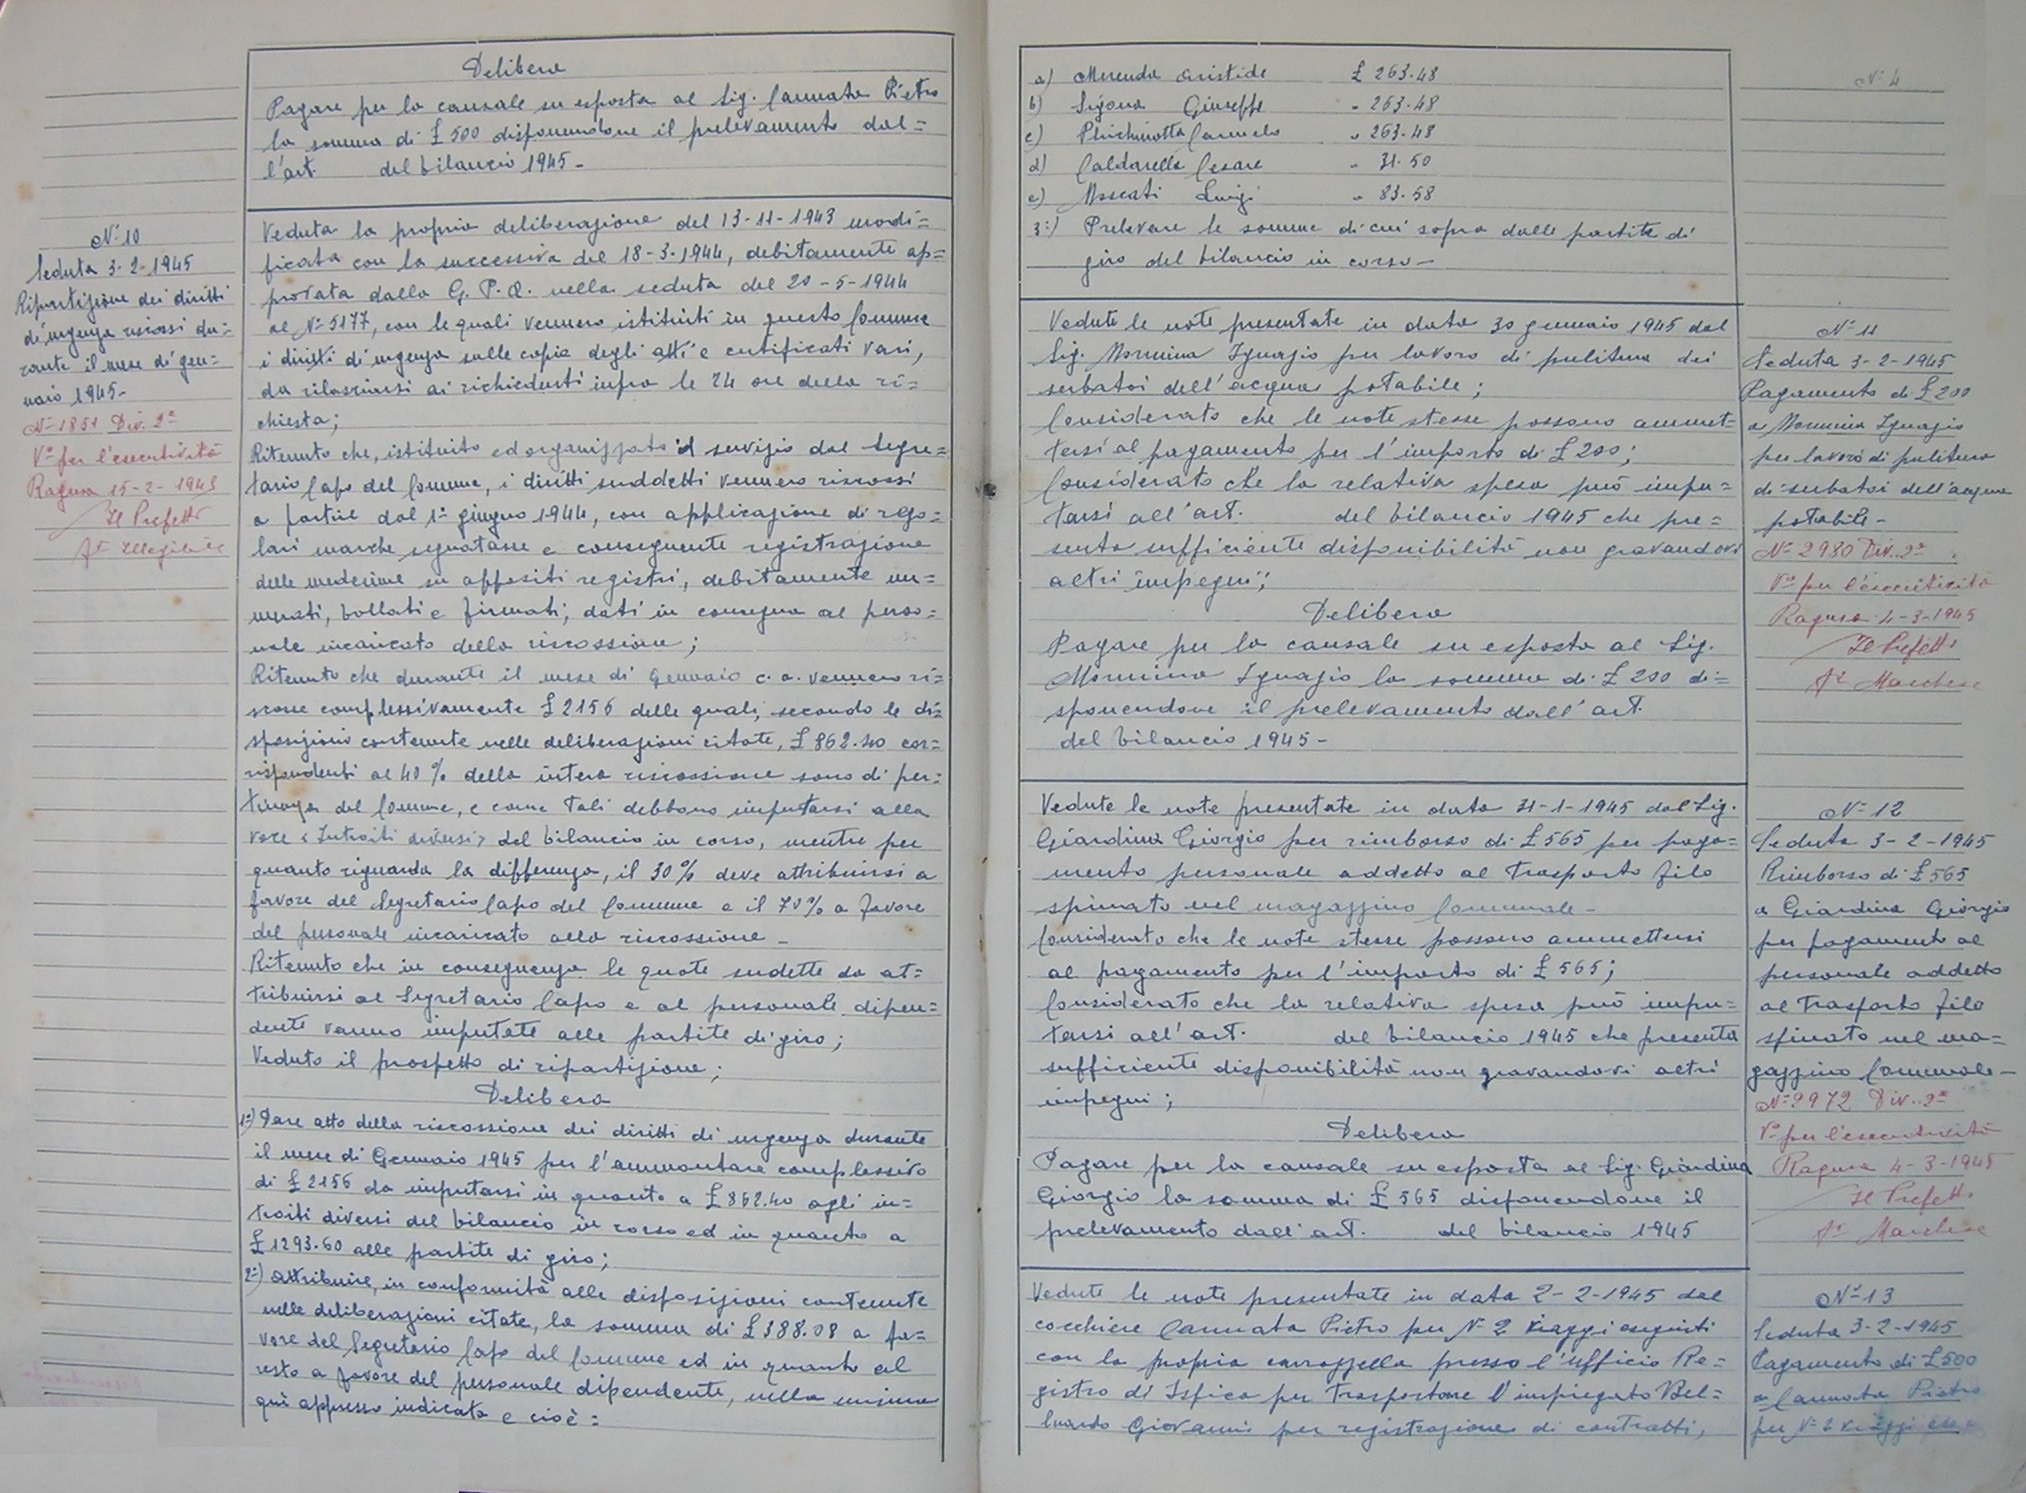 Delibera
Pagare per la causale su esposta al Sig. Cannata Pietro
la somma di £ 500 disponendone il prelevamento dal=
l'art. del bilancio 1945-
N° 10
Seduta 3-2-1945
Ripartizione dei diritti
di urgenza riscossi du=
rante il mese di gen=
naio 1945-
N° 1851 Div. 2ª
V° per l'esecutività
Ragusa 15-2-1945
Il Prefetto
F° Illegibile
Veduta la propria deliberazione del 13-11-1943 modi=
ficata con la successiva del 18-3-1944, debitamente ap=
provata dalla G. P. A. nella seduta del 20-5-1944
al N° 5177, con le quali vennero istituiti in questo Comune
i diritti di urgenza sulle copie degli atti e certificati vari,
da rilasciarsi ai richiedenti infra le 24 ore della ri=
chiesta;
Ritenuto che, istituito ed organizzato il servizio dal Segre=
tario Capo del Comune, i diritti suddetti vennero riscossi
a partire dal 1° giugno 1944, con applicazione di rego=
lari marche segnatasse e conseguente registrazione
delle medesime su appositi registri, debitamente nu=
merati, bollati e firmati, dati in consegna al perso=
nale incaricato della riscossione;
Ritenuto che durante il mese di Gennaio c. a. vennero ri=
scosse complessivamente £ 2156 delle quali, secondo le di=
sposizioni contenute nelle deliberazioni citate, £ 862.40 cor=
rispondenti al 40% della intera riscossione sono di per=
tinenza del Comune, e come tali debbono imputarsi alla
voce "Introiti diversi" del bilancio in corso, mentre per
quanto riguarda la differenza, il 30% deve attribuirsi a
favore del Segretario Capo del Comune e il 70% a favore
del personale incaricato alla riscossione -
Ritenuto che in conseguenza le quote sudette da at=
tribuirsi al Segretario Capo e al personale dipen=
dente vanno imputate alle partite di giro;
Veduto il prospetto di ripartizione;
Delibera
1°) Dare atto della riscossione dei diritti di urgenza durante
il mese di Gennaio 1945 per l'ammontare complessivo
di £ 2156 da imputarsi in quanto a £ 862.40 agli in=
troiti diversi del bilancio in corso ed in quanto a
£ 1293.60 alle partite di giro;
2°) Attribuire, in conformità alle disposizioni contenute
nelle deliberazioni citate, la somma di £ 388.08 a fa=
vore del Segretario Capo del Comune ed in quanto al
resto a favore del personale dipendente, nella misura
qui appresso indicata e cioè:
N° 4
a) Merenda Aristide £ 263.48
b) Sigona Giuseppe " 263.48
c) Carmelo " 263.48
d) Caldarella Cesare " 31.50
e) Moscati Luigi " 83.58
3°) Prelevare le somme di cui sopra dalle partite di
giro del bilancio in corso-
N° 11
Seduta 3-2-1945
Pagamento di £ 200
a Mormina Ignazio
per lavoro di pulitura
di serbatoi dell'acqua
potabile-
N° 2980 Div. 2ª
V° per l'esecutività
Ragusa 4-3-1945
Il Prefetto
F° Marchese
Vedute le note presentate in data 30 gennaio 1945 dal
Sig. Mormina Ignazio per lavoro di pulitura dei
serbatoi dell'acqua potabile;
Considerato che le note stesse possono ammet=
tersi al pagamento per l'importo di £ 200;
Considerato che la relativa spesa può impu=
tarsi all'art. del bilancio 1945 che pre=
senta sufficiente disponibilità non gravandovi
altri impegni;
Delibera
Pagare per la causale su esposta al Sig.
Mormina Ignazio la somma di £ 200 di=
sponendone il prelevamento dall'art.
del bilancio 1945-
N° 12
Seduta 3-2-1945
Rimborso di £ 565
a Giardina Giorgio
per pagamento al
personale addetto
al trasporto filo
spinato nel ma=
gazzino Comunale-
N° 2972 Div. 2ª
V° per l'esecutività
Ragusa 4-3-1945
Il Prefetto
F° Marchese
Vedute le note presentate in data 31-1-1945 dal Sig.
Giardina Giorgio per rimborso di £ 565 per paga=
mento personale addetto al trasporto filo
spinato nel magazzino Comunale-
Considerato che le note stesse possono ammettersi
al pagamento per l'importo di £ 565;
Considerato che la relativa spesa può impu=
tarsi all'art. del bilancio 1945 che presenta
sufficiente disponibilità non gravandovi altri
impegni;
Delibera
Pagare per la causale su esposta al Sig. Giardina
Giorgio la somma di £ 565 disponendone il
prelevamento dall'art. del bilancio 1945
N° 13
Seduta 3-2-1945
Pagamento di £ 500
a Cannata Pietro
per N° 2 viaggi
Vedute le note presentate in data 2-2-1945 dal
cocchiere Cannata Pietro per N° 2 viaggi eseguiti
con la propria carrozzella presso l'ufficio Re=
gistro di Ispica per trasportare l'impiegato Bel=
luardo Giovanni per registrazione di contratti,